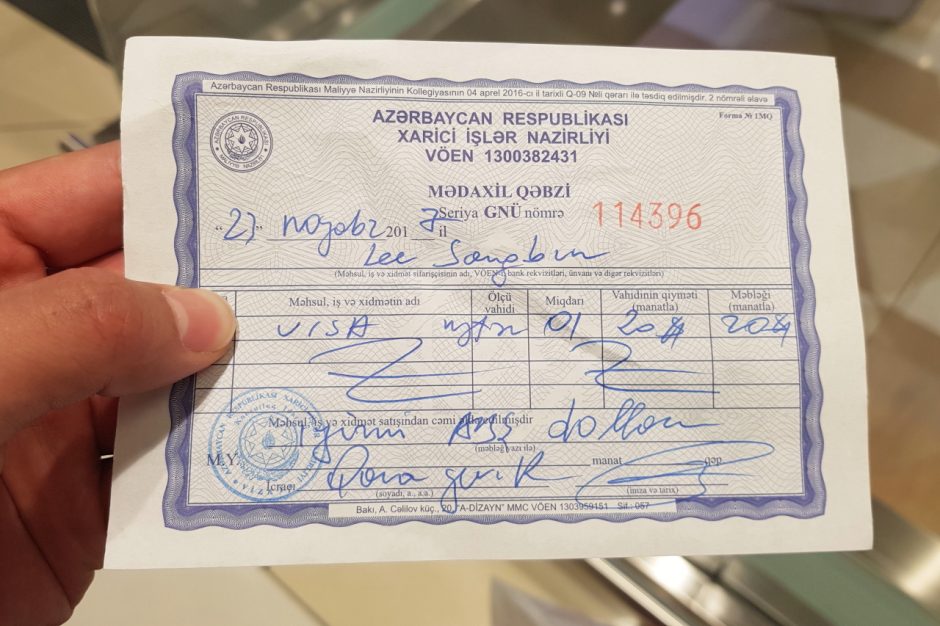 Azərbaycan Respublikası Maliyyə Nazirliyinin Kollegiyasının 04 aprel 2016-cı il tarixli Q-09 №li qərarı ilə təsdiq edilmişdir. 2 nömrəli əlavə
Forma № 1MQ
AZƏRBAYCAN RESPUBLİKASI
XARİCİ İŞLƏR NAZİRLİYİ
VÖEN 1300382431
MƏDAXİL QƏBZİ
Seriya GNÜ nömrə 114396
"27" noyabr 2017 il
Lee Sangbum
(Məhsul, iş və xidmət sifarişçisinin adı, VÖEN-i, bank rekvizitləri, ünvanı və digər rekvizitləri)
Məhsul, iş və xidmətin adı Ölçü vahidi Miqdarı Vahidinin qiyməti (manatla) Məbləği (manatla)
VISA 01 20 20
Məhsul, iş və xidmət satışından cəmi edilmişdir
iyirmi ABŞ dolları
(məbləğ yazı ilə)
M.Y. manat qəp
İcraçı
(soyadı, a., a.a.) (imza və tarix)
Bakı, A. Cəlilov küç., 20, "A-DİZAYN" MMC VÖEN 1303959151 Sif.: 057